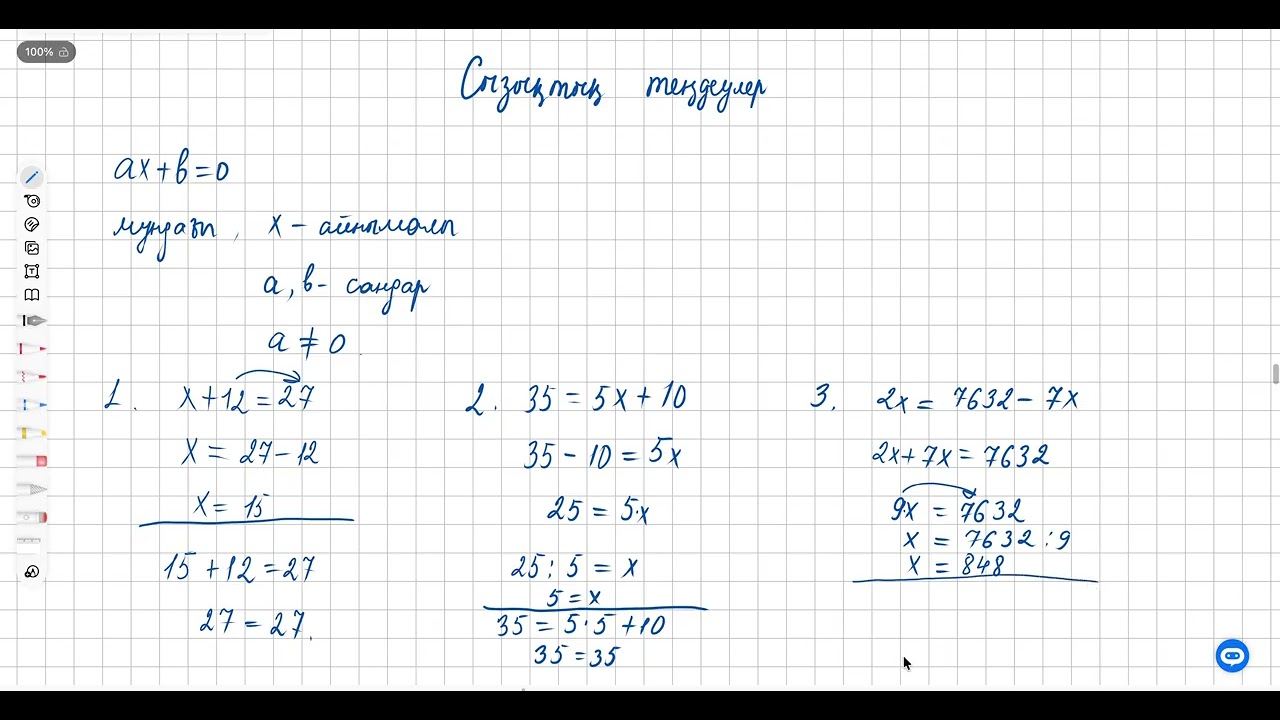 100%
Сызықтық теңдеулер
ax+b=0
мұндағы, x – айнымалы
a, b – сандар
a ≠ 0.
1. x+12=27
x = 27−12
x = 15
15+12=27
27=27.
2. 35 = 5x+10
35 − 10 = 5x
25 = 5·x
25 : 5 = x
5 = x
35 = 5·5+10
35 = 35
3. 2x = 7632 − 7x
2x+7x = 7632
9·x = 7632
x = 7632 : 9
x = 848